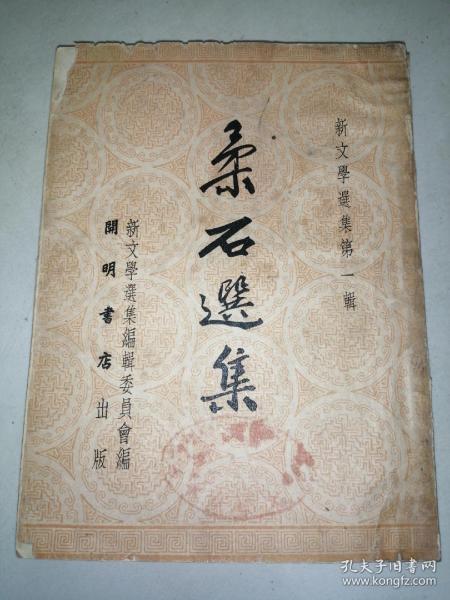 新文學選集第一輯
柔石選集
新文學選集編輯委員會編
開明書店出版
孔夫子旧书网
www.kongfz.com